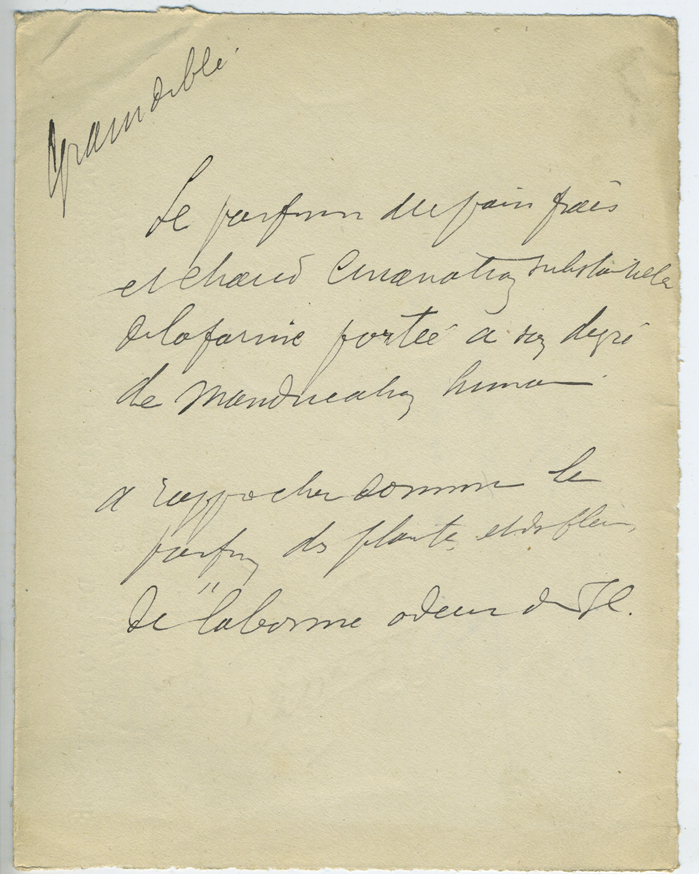 Grain de blé.
Le parfum du pain frais
et chaud émanation substantielle
de la farine portée a son degré
de manducation humaine.
a rapprocher comme le
parfum des plantes et des fleurs
de "la bonne odeur de J C.